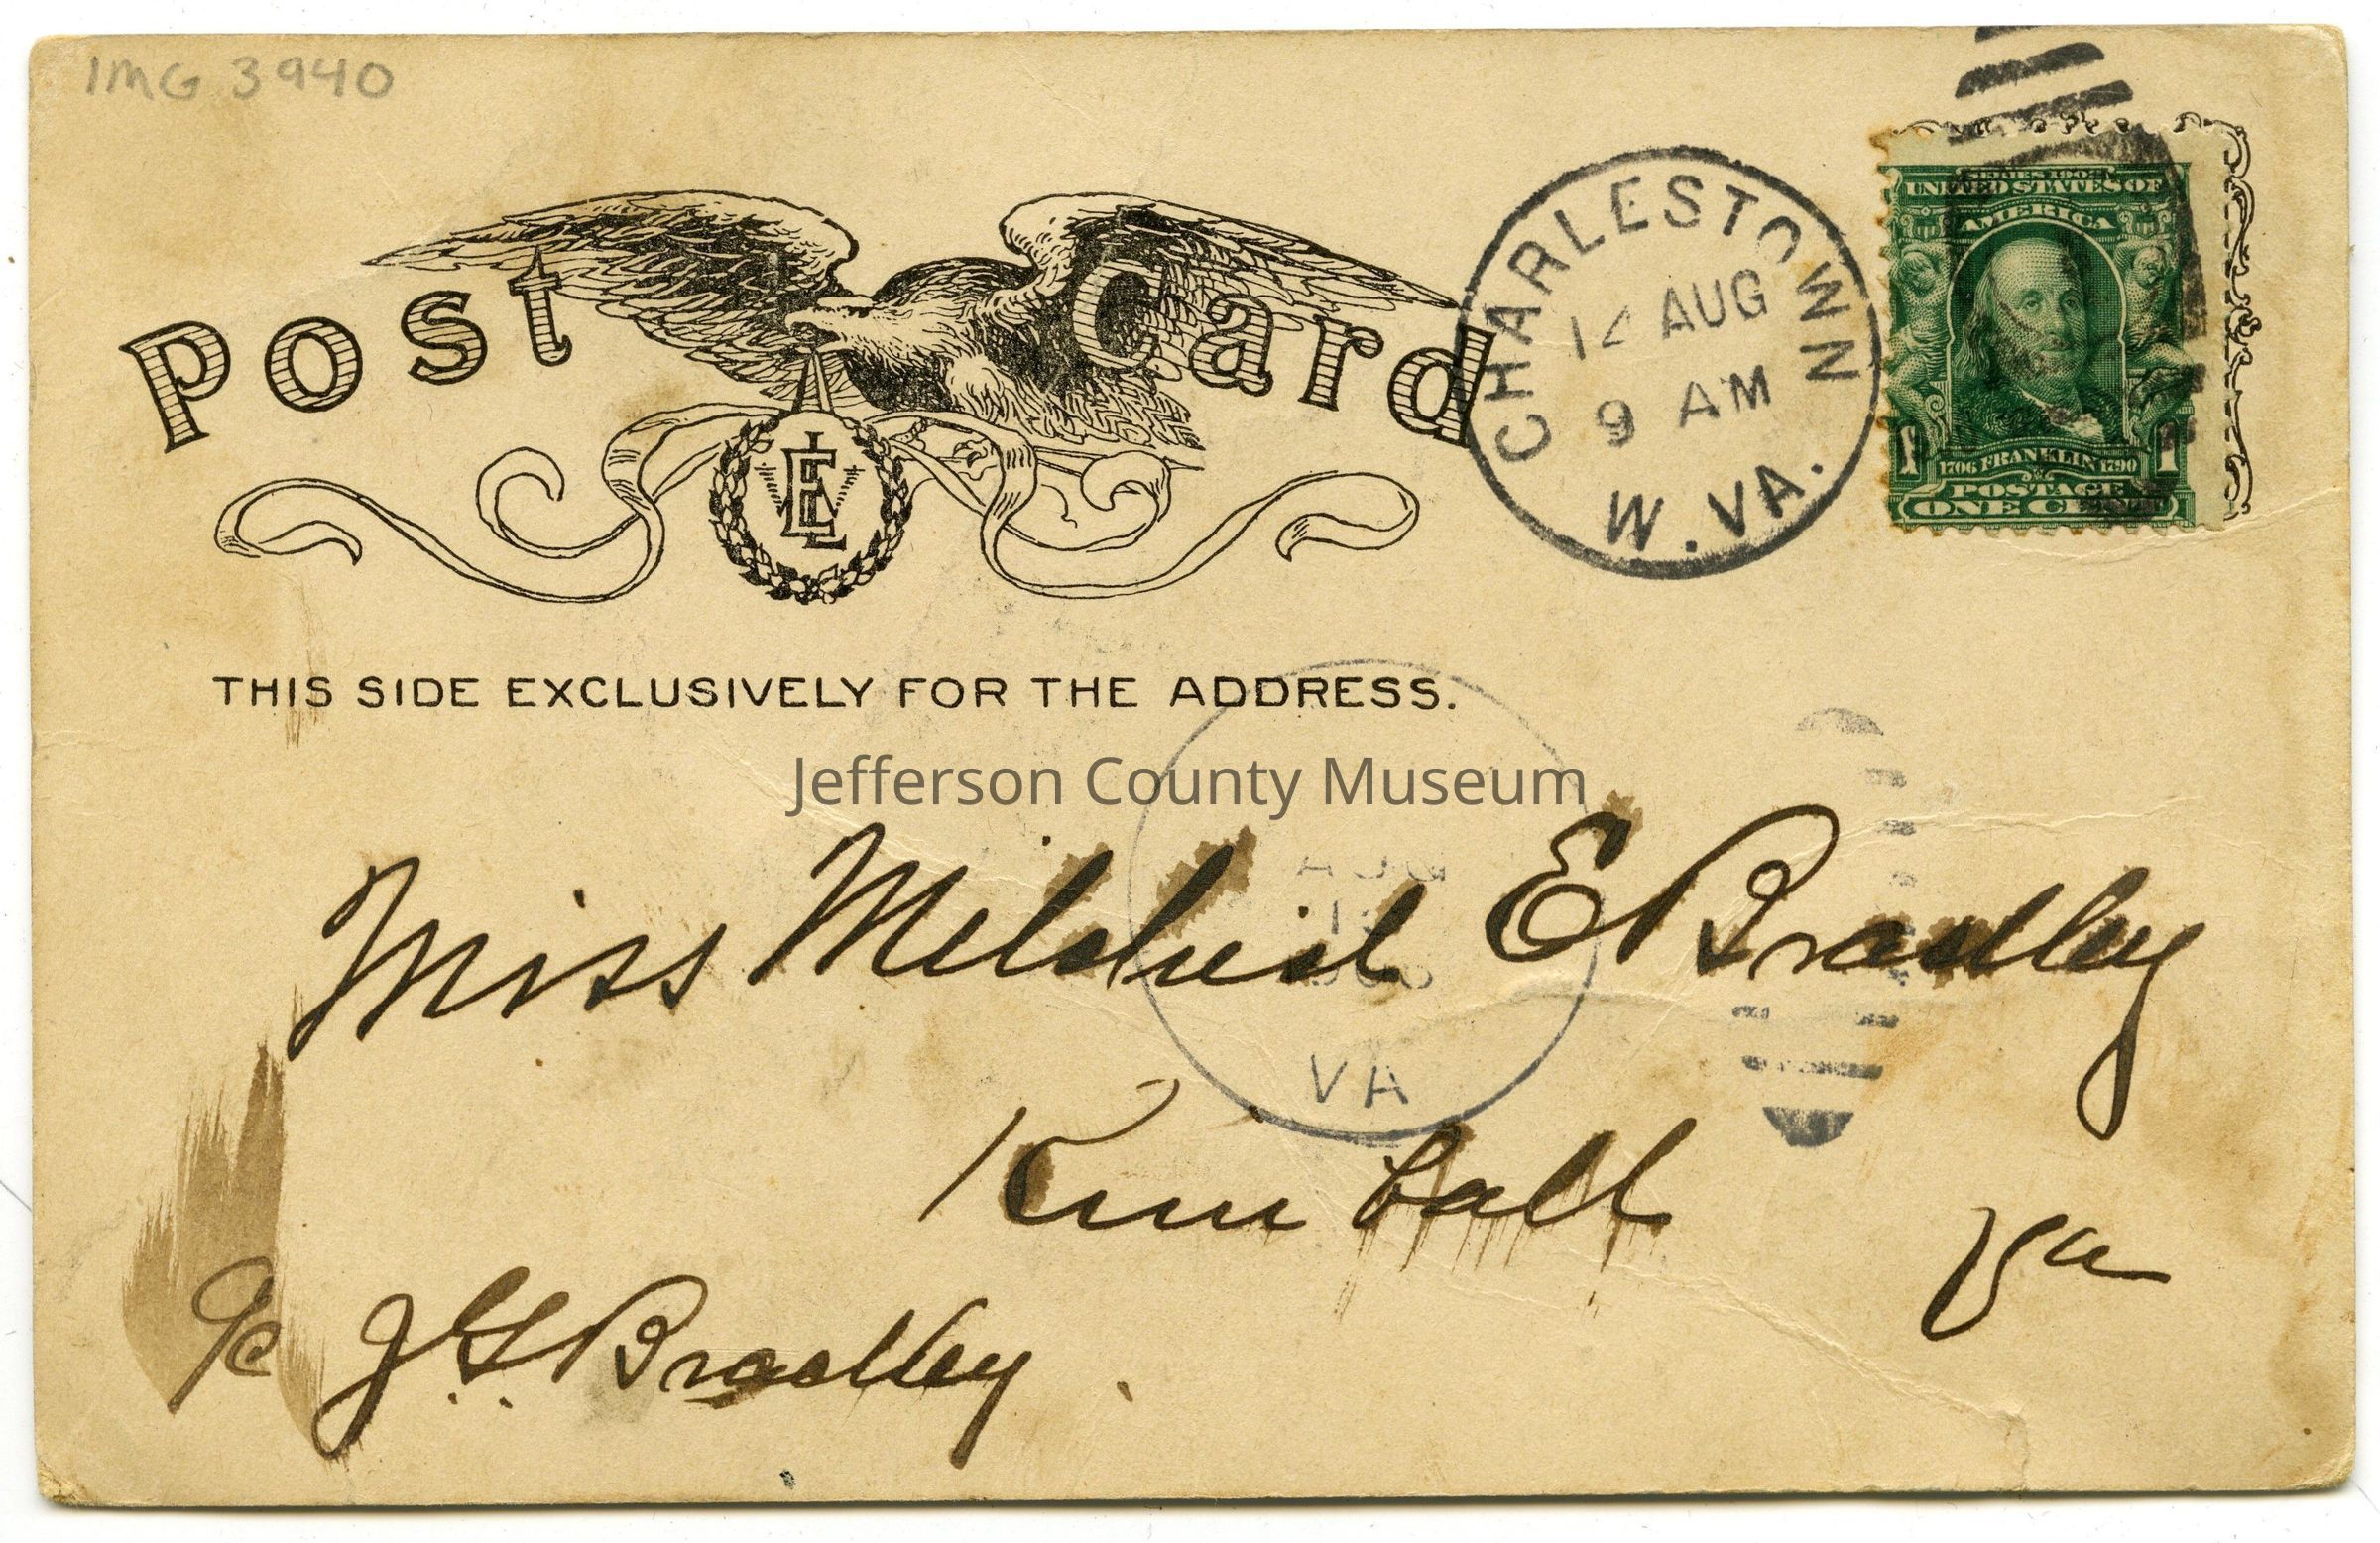 IMG 3940
Post Card
CHARLESTOWN
AUG
9 AM
W. VA.
SERIES 1902
UNITED STATES OF
AMERICA
1 1706 FRANKLIN 1790 1
POSTAGE
ONE CENT
THIS SIDE EXCLUSIVELY FOR THE ADDRESS.
Jefferson County Museum
AUG
VA
Miss Mildred E Bradley
Kimball
Va
c/o J. G. Bradley